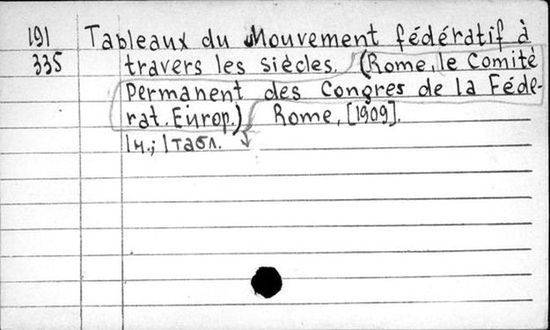 191 Tableaux du Mouvement fédératif à
335 travers les siècles. (Rome, le Comité
Permanent des Congres de la Féde-
rat. Europ.) Rome, [1909].
1 ч.; 1 табл.